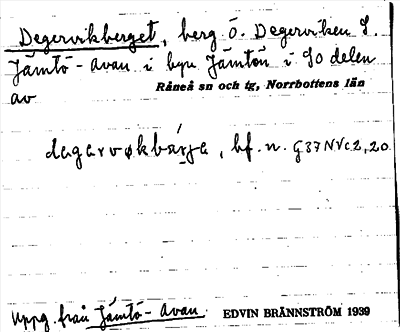 Degervikberget, berg ö. Degerviken S.
Jämtö-avan i byn Jämtön i SO delen
av Råneå sn och tg, Norrbottens län
dagarvøkbárja, bf. n. G37NVc2,20
Uppg. från Jämtö-Avan. EDVIN BRÄNNSTRÖM 1939